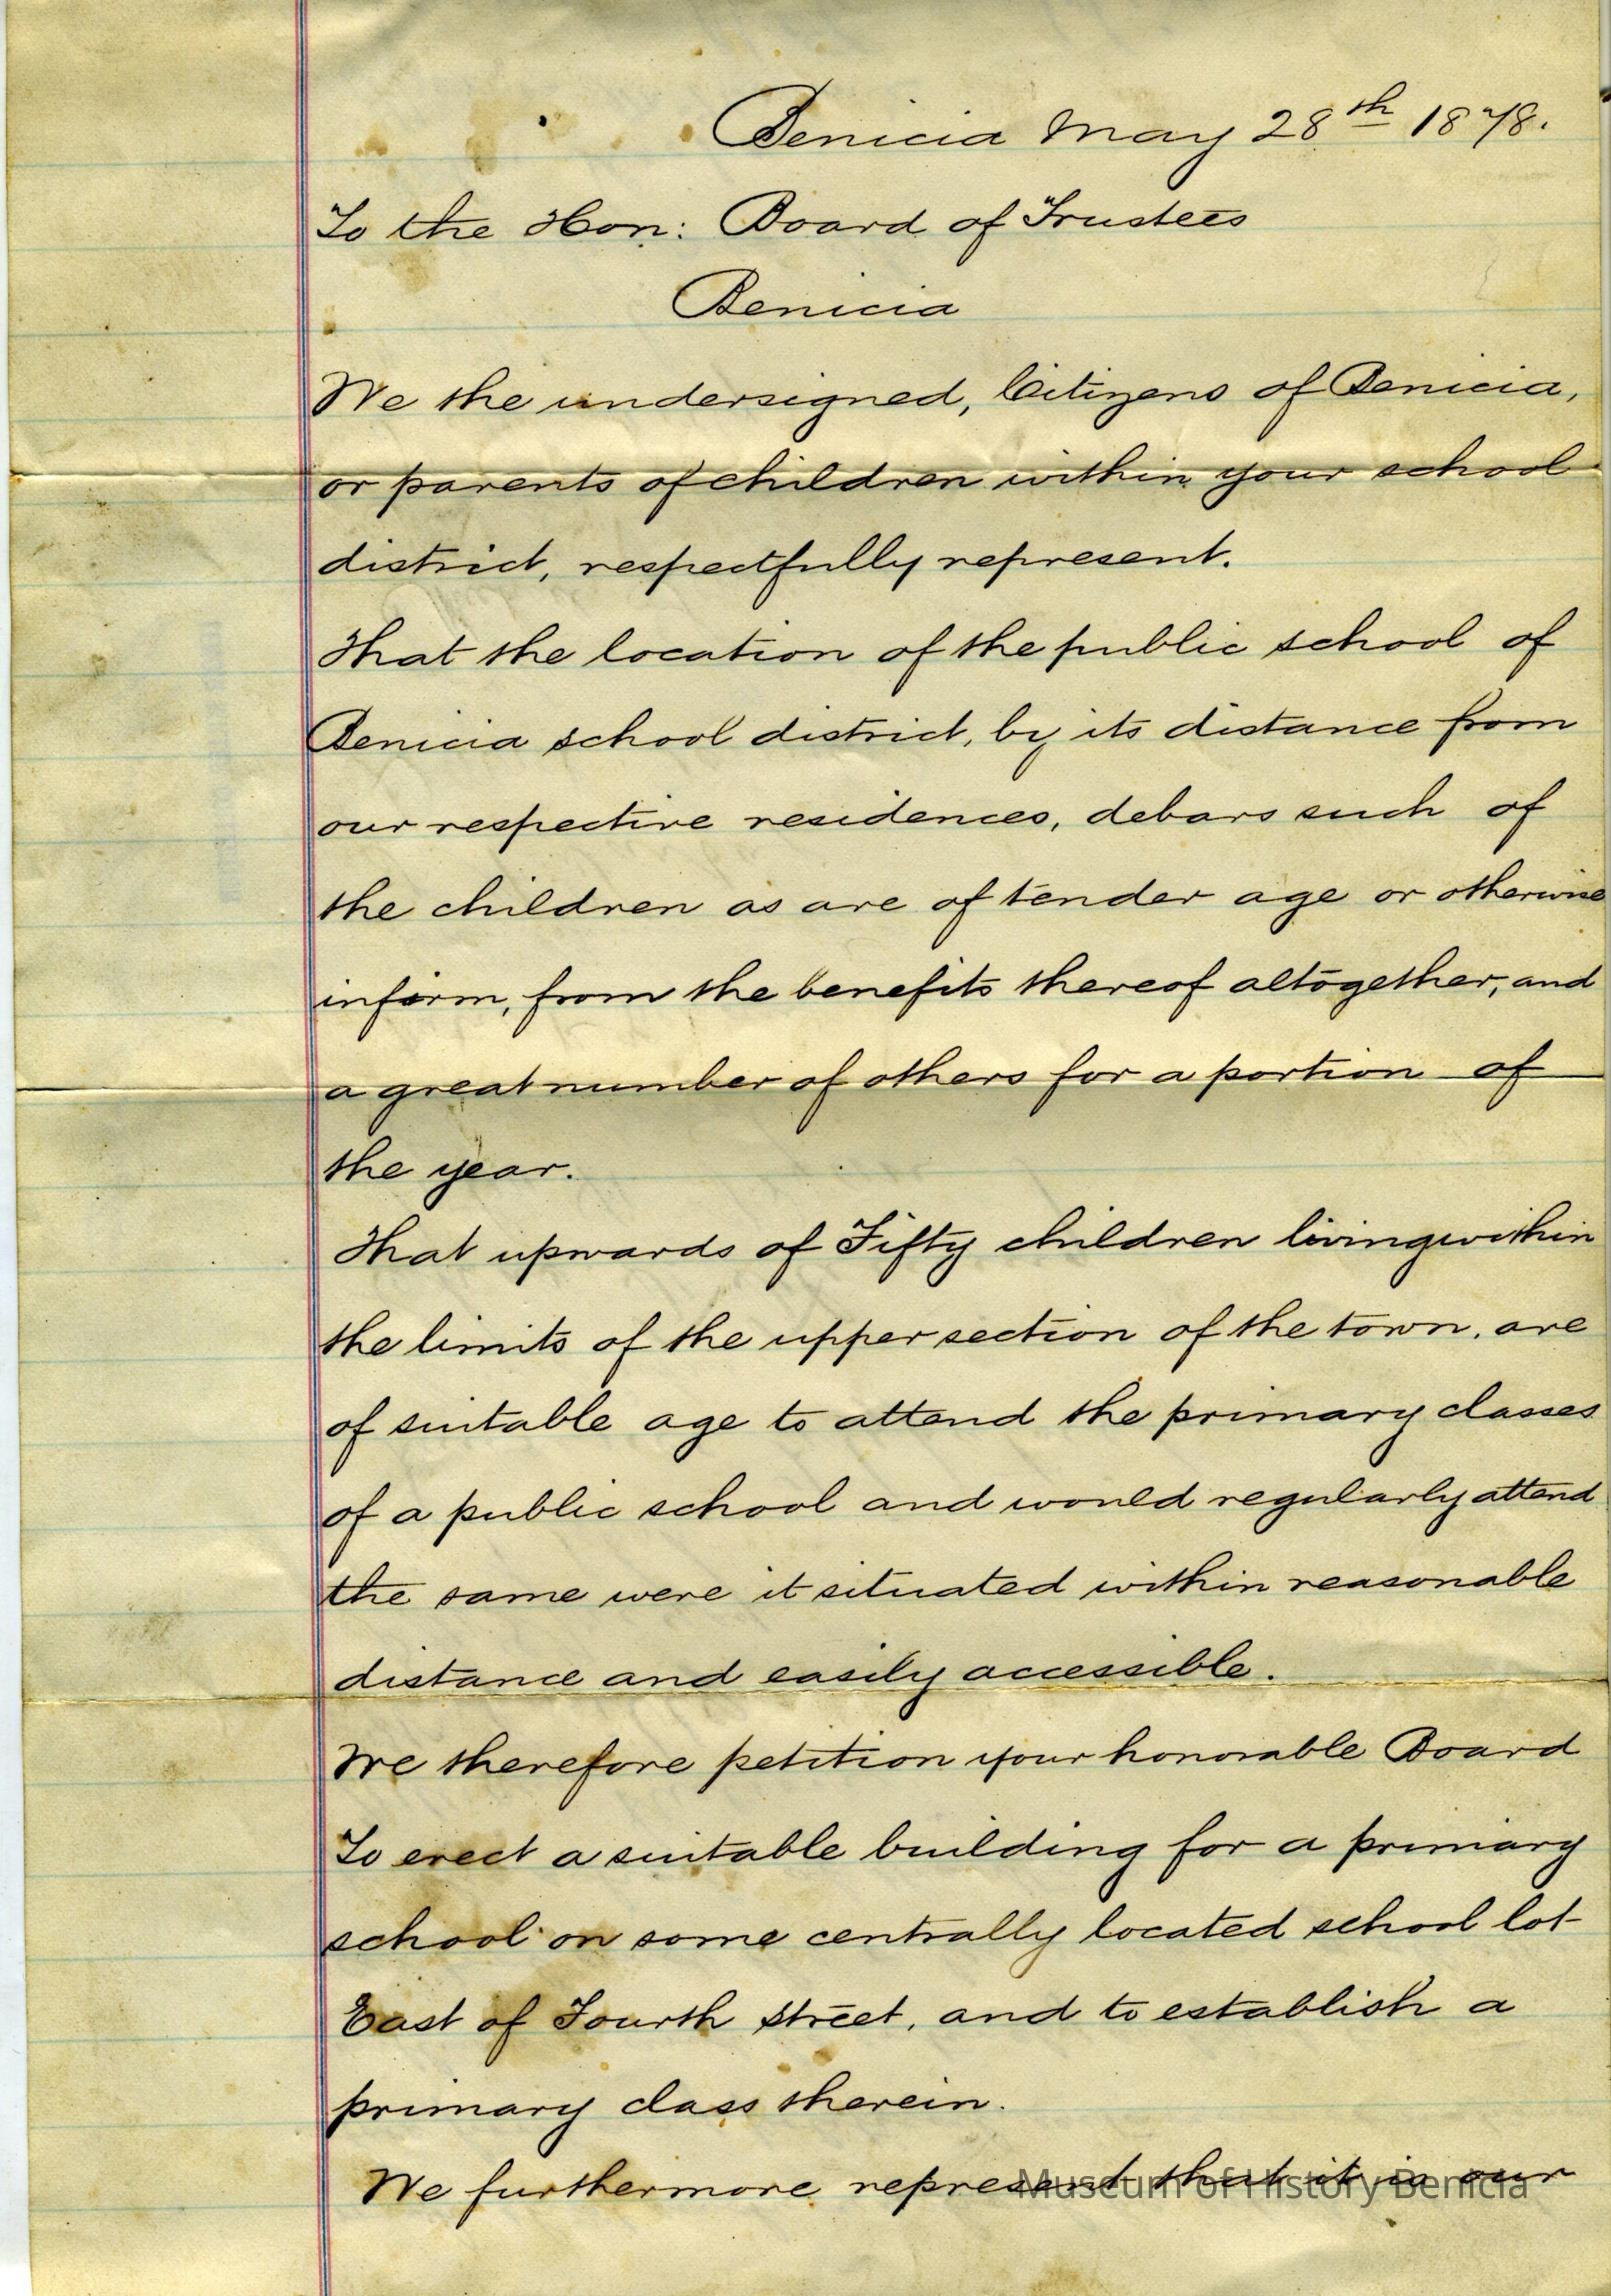 Benicia May 28th 1878.
To the Hon: Board of Trustees
Benicia
We the undersigned, Citizens of Benicia,
or parents of children within your school
district, respectfully represent.
That the location of the public school of
Benicia school district, by its distance from
our respective residences, debars such of
the children as are of tender age or otherwise
infirm, from the benefits thereof altogether, and
a great number of others for a portion of
the year.
That upwards of Fifty children living within
the limits of the upper section of the town, are
of suitable age to attend the primary classes
of a public school and would regularly attend
the same were it situated within reasonable
distance and easily accessible.
We therefore petition your honorable Board
To erect a suitable building for a primary
school on some centrally located school lot
East of Fourth street, and to establish a
primary class therein.
We furthermore represent that it is our
Museum of History Benicia